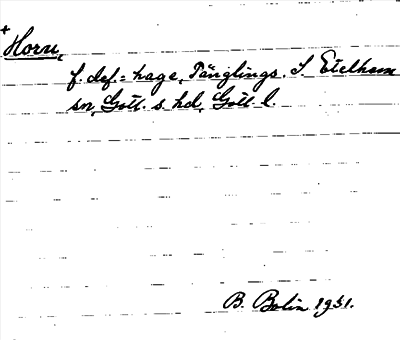 +
Horu,
f. def. = hage, Tänglings, I Etelhem
sn, Gotl. s. hd, Gotl. l.
B. Bolin 1931.